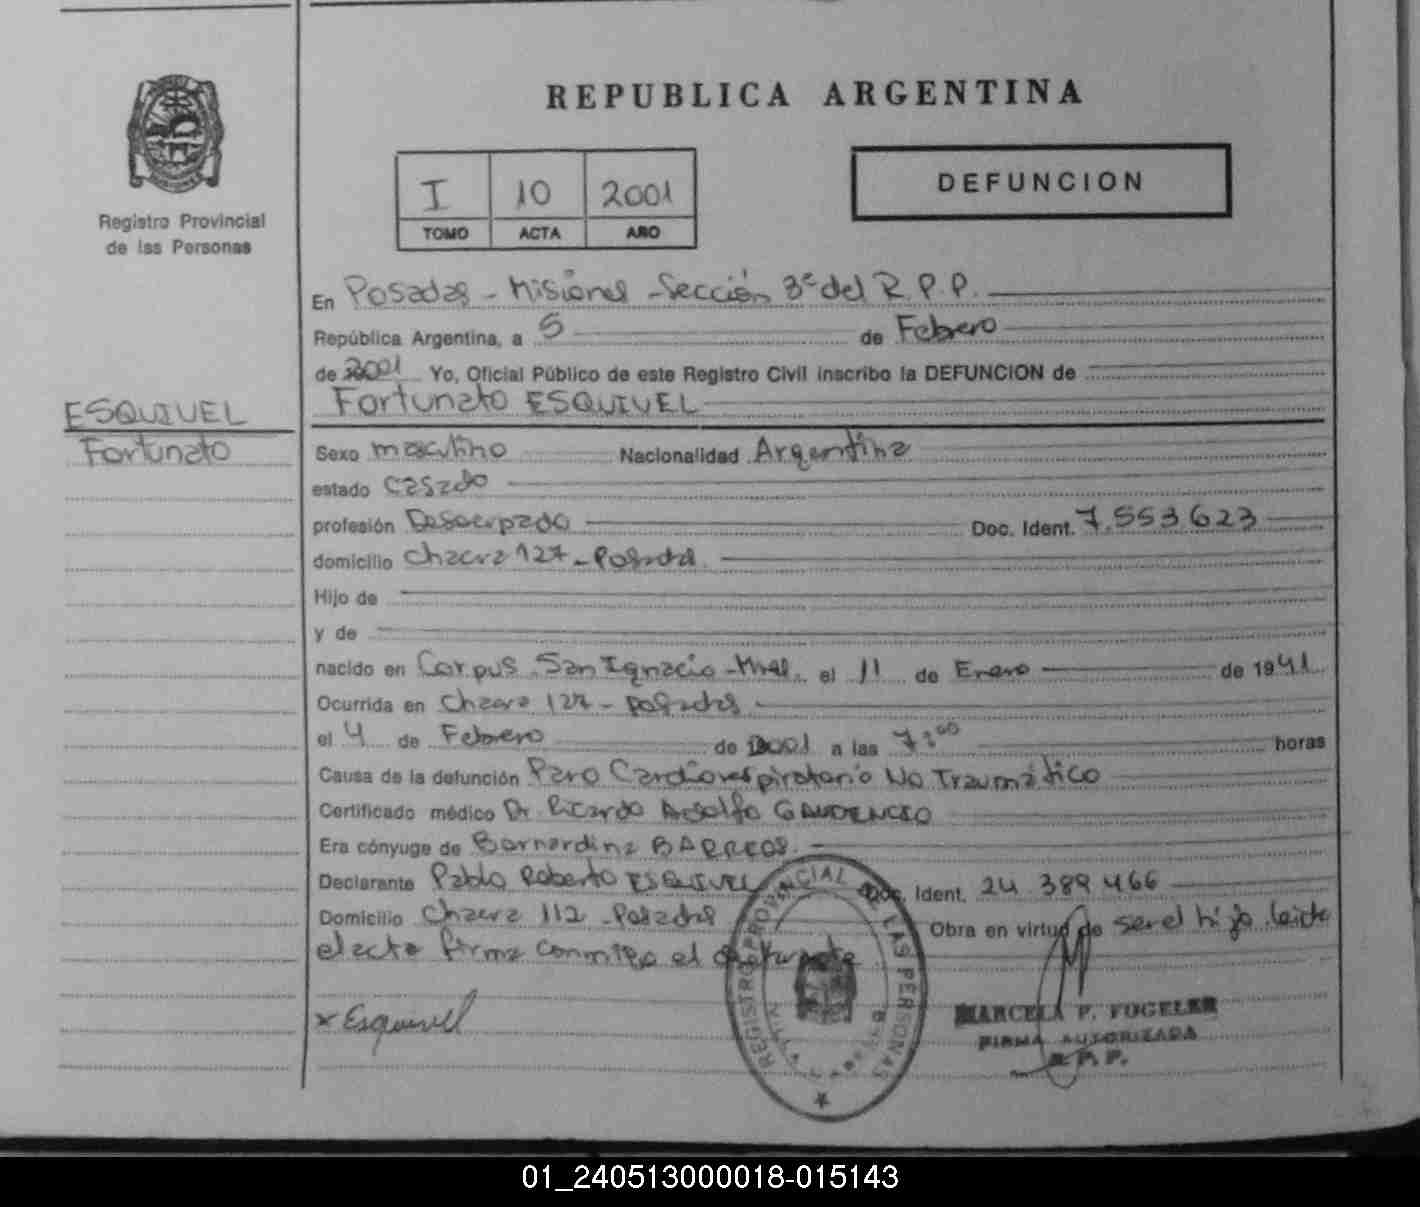 REPUBLICA ARGENTINA
Registro Provincial
de las Personas
I 10 2001
TOMO ACTA AÑO
DEFUNCION
En Posadas - Misiones - Sección 3ª del R.P.P.
República Argentina, a 5 de Febrero
de 2001 Yo, Oficial Público de este Registro Civil inscribo la DEFUNCION de
Fortunato ESQUIVEL
ESQUIVEL
Fortunato
Sexo masculino Nacionalidad Argentina
estado Casado
profesión Desocupado Doc. Ident. 7.553623
domicilio Chacra 127 - Posadas
Hijo de
y de
nacido en Corpus San Ignacio - Mnes. el 11 de Enero de 1941
Ocurrida en Chacra 127 - Posadas
el 4 de Febrero de 2001 a las 7:00 horas
Causa de la defunción Paro Cardiorrespiratorio No Traumático
Certificado médico Dr. Ricardo Adolfo GAUDENCIO
Era cónyuge de Bernardina BARREOS
Declarante Pablo Roberto ESQUIVEL Doc. Ident. 24 389 466
Domicilio Chacra 112 - Posadas Obra en virtud de ser el hijo leida
el acta firma conmigo el
x Esquivel
REGISTRO PROVINCIAL DE LAS PERSONAS
MARCELA F. FOGELER
FIRMA AUTORIZADA
R.P.P.
01_240513000018-015143